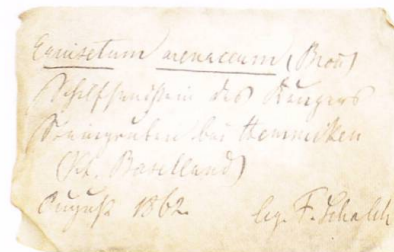 Equisetum arenaceum (Bron)
Schilfsandstein des Keupers
bei Hemmiken
(Kt. Baselland)
August 1862. leg. F. Schalch